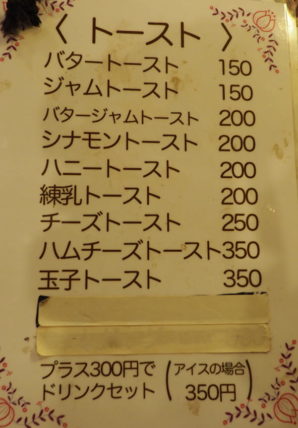 〈 トースト 〉
バタートースト 150
ジャムトースト 150
バタージャムトースト 200
シナモントースト 200
ハニートースト 200
練乳トースト 200
チーズトースト 250
ハムチーズトースト 350
玉子トースト 350
プラス300円で (アイスの場合
ドリンクセット 350円)